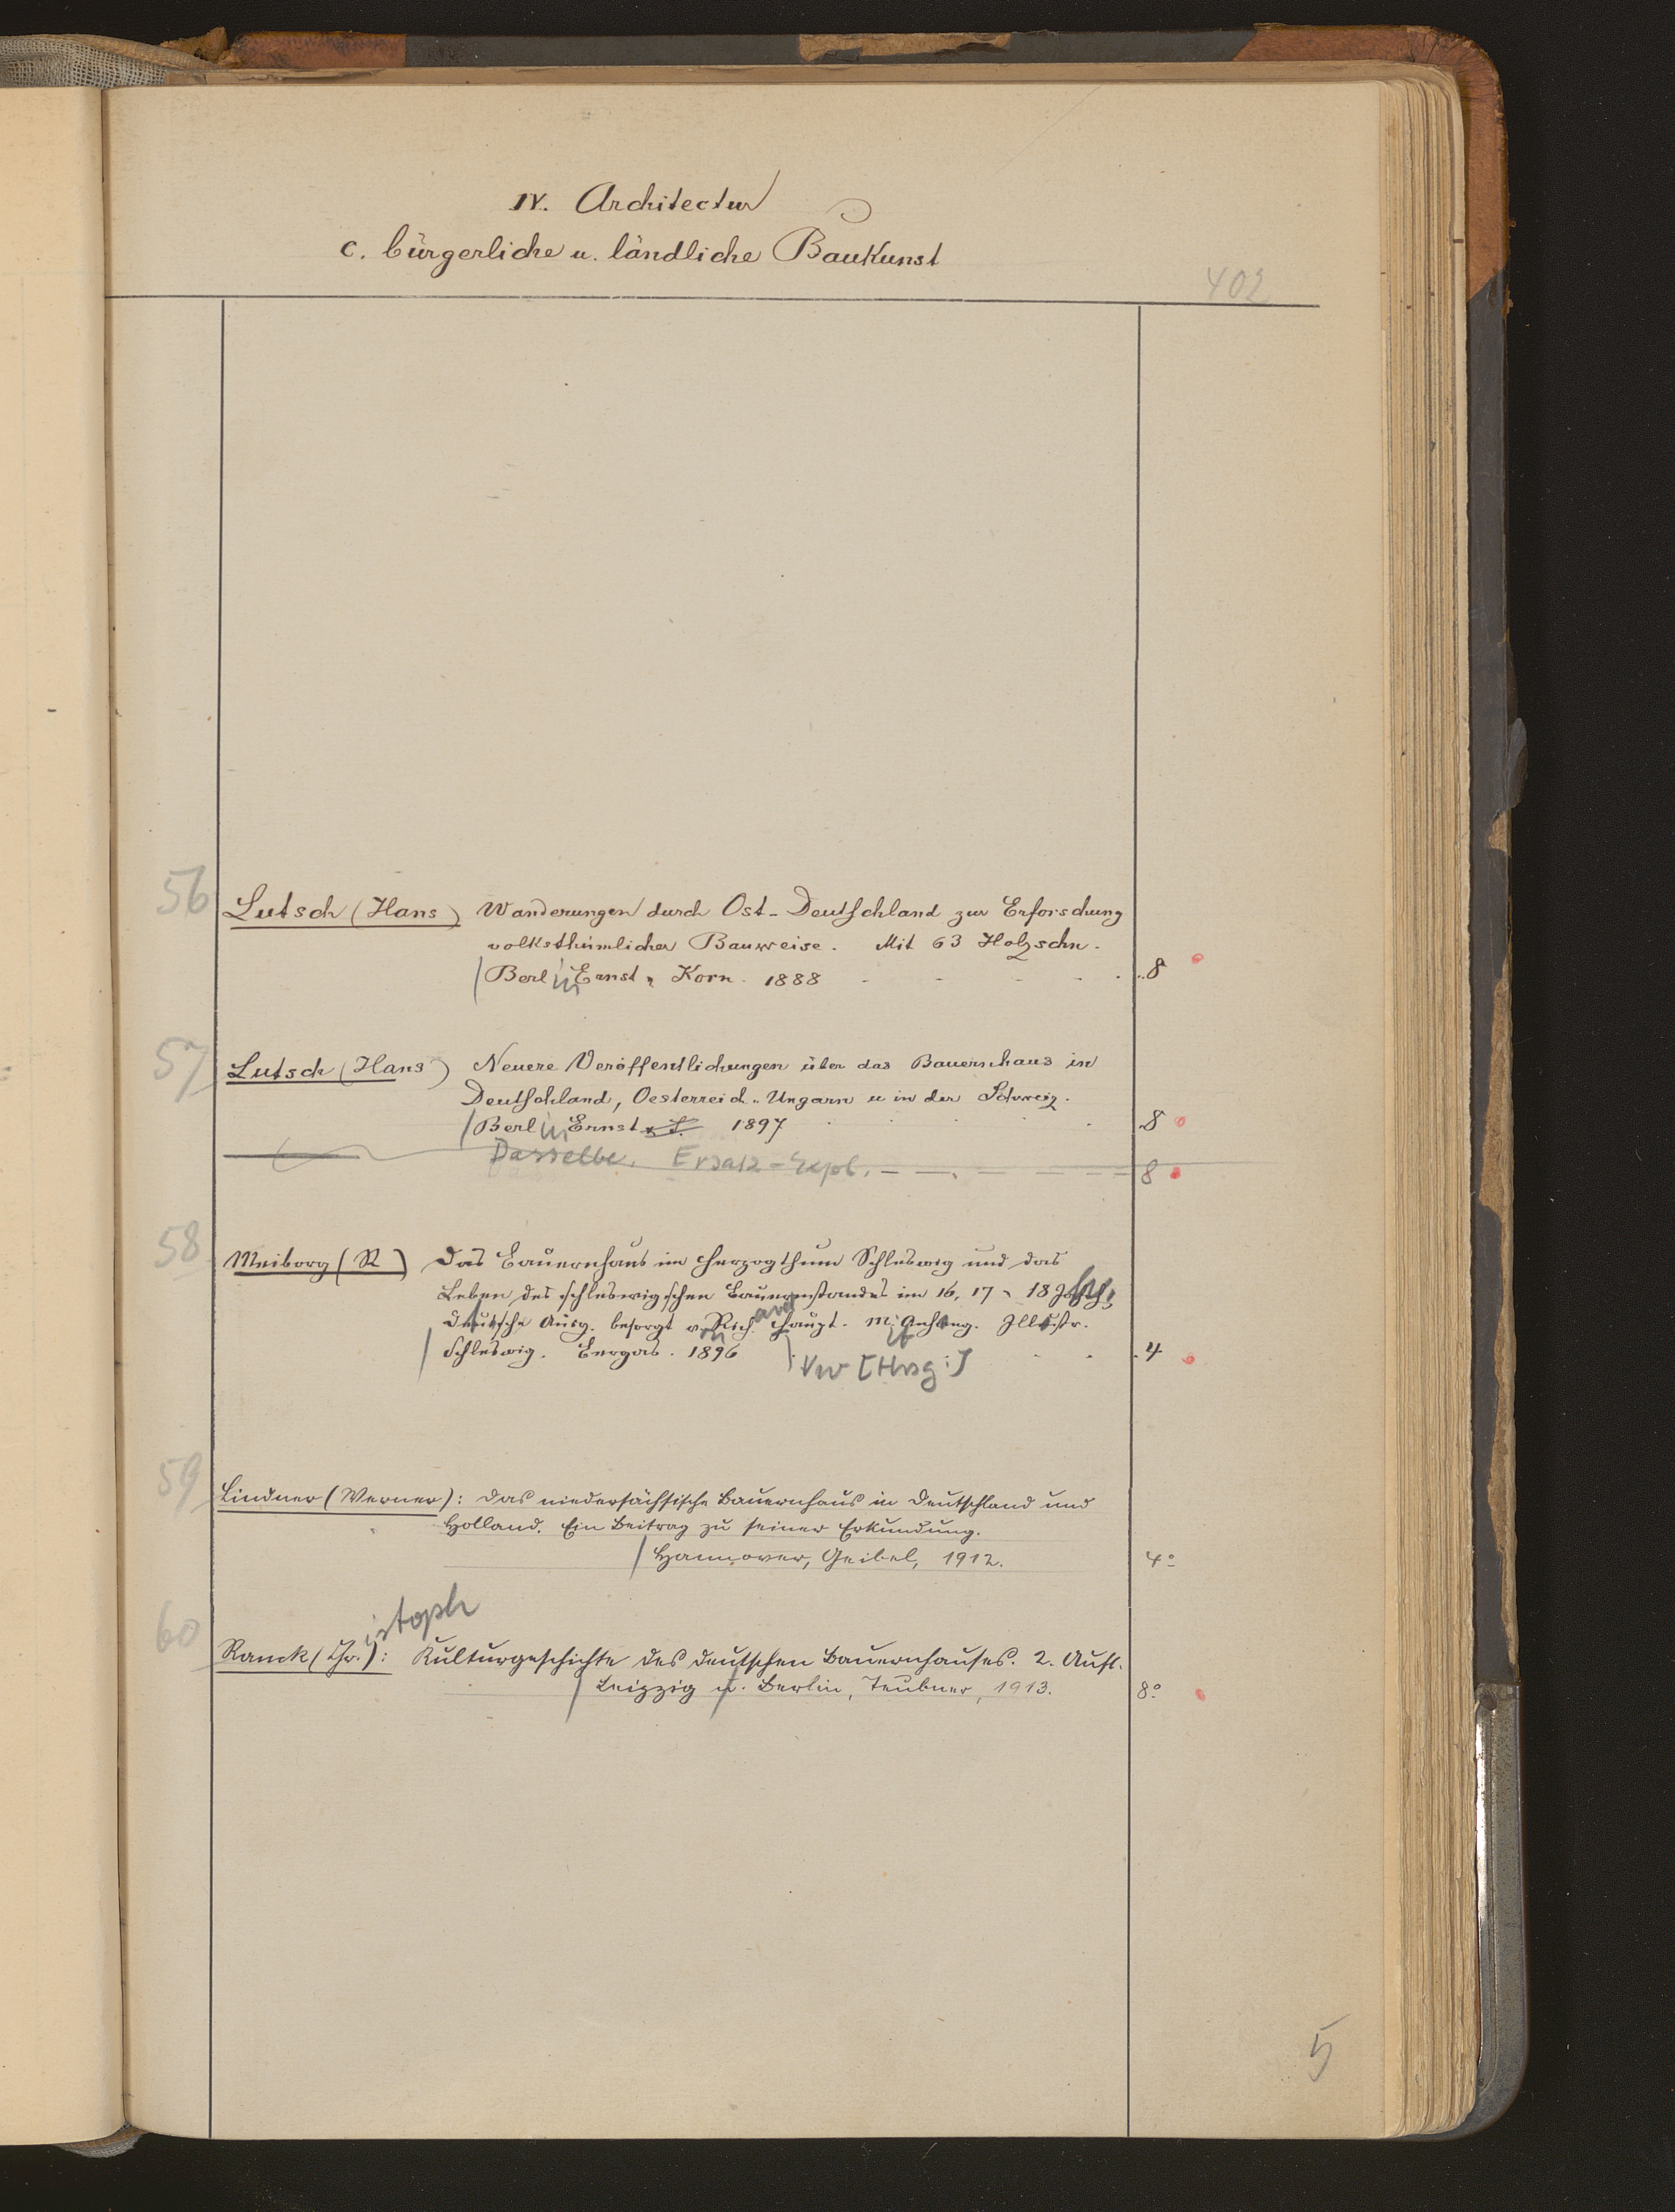 IV. Architectur
c. bürgerliche u. ländliche Baukunst
402
56 Lutsch (Hans) Wanderungen durch Ost-Deutschland zur Erforschung
volksthümlicher Bauweise. Mit 63 Holzschn.
Berlin Ernst u. Korn. 1888 8
57 Lutsch (Hans) Neuere Veröffentlichungen über das Bauernhaus in
Deutschland, Oesterreich-Ungarn u in der Schweiz.
Berlin Ernst 1897 8
Dasselbe. Ersatz-Expl. 8
58 Meiborg (R) Das Bauernhaus im Herzogthum Schleswig und das
Leben des schleswigschen Bauernstandes im 16, 17 u 18 Jahrh.
Deutsche Ausg. besorgt von Richard Haupt. Mit Anhang. Illustr.
Schleswig. Bergas. 1896 4
Vw [Hrsg:]
59 Lindner (Werner): Das niedersächsische Bauernhaus in Deutschland und
Holland. Ein Beitrag zu seiner Erkundung.
Hannover, Geibel, 1912. 4°
istoph
60 Ranck (Chr.): Kulturgeschichte des deutschen Bauernhauses. 2. Aufl.
Leipzig u. Berlin, Teubner, 1913. 8°
5